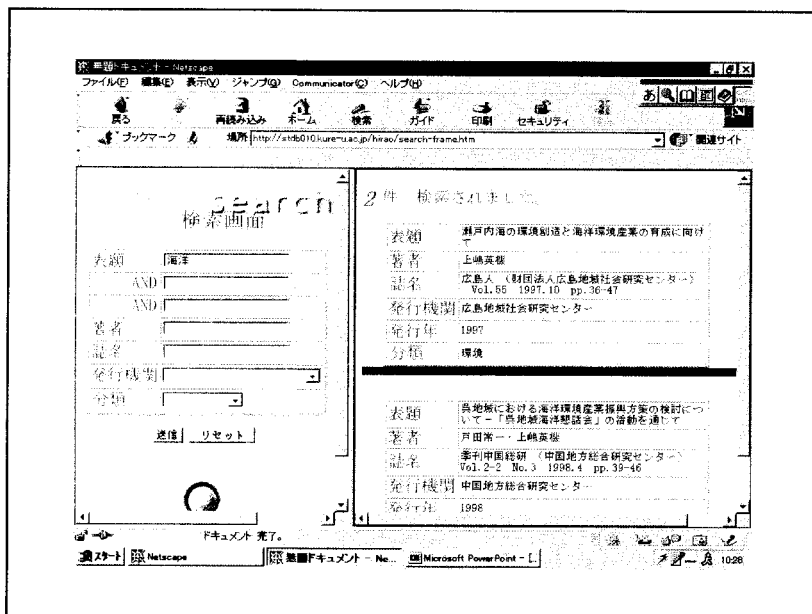 無題ドキュメント - Netscape
ファイル(F) 編集(E) 表示(V) ジャンプ(G) Communicator(C) ヘルプ(H)
戻る 再読み込み ホーム 検索 ガイド 印刷 セキュリティ
ブックマーク 場所 http://stdb010.kure-u.ac.jp/hirao/search-frame.htm 関連サイト
search
検索画面
表題 海洋
AND
AND
著者
誌名
発行機関
分類
送信 リセット
2 件 検索されました。
表題 瀬戸内海の環境創造と海洋環境産業の育成に向け
て
著者 上嶋英機
誌名 広島人 (財団法人広島地域社会研究センター)
Vol.55 1997.10 pp.36-47
発行機関 広島地域社会研究センター
発行年 1997
分類 環境
表題 呉地域における海洋環境産業振興方策の検討につ
いて－「呉地域海洋懇話会」の活動を通じて
著者 戸田常一・上嶋英機
誌名 季刊中国総研 (中国地方総合研究センター)
Vol.2-2 No.3 1998.4 pp.39-46
発行機関 中国地方総合研究センター
発行年 1998
ドキュメント 完了。
スタート Netscape 無題ドキュメント - Ne... Microsoft PowerPoint - [.. 10:28